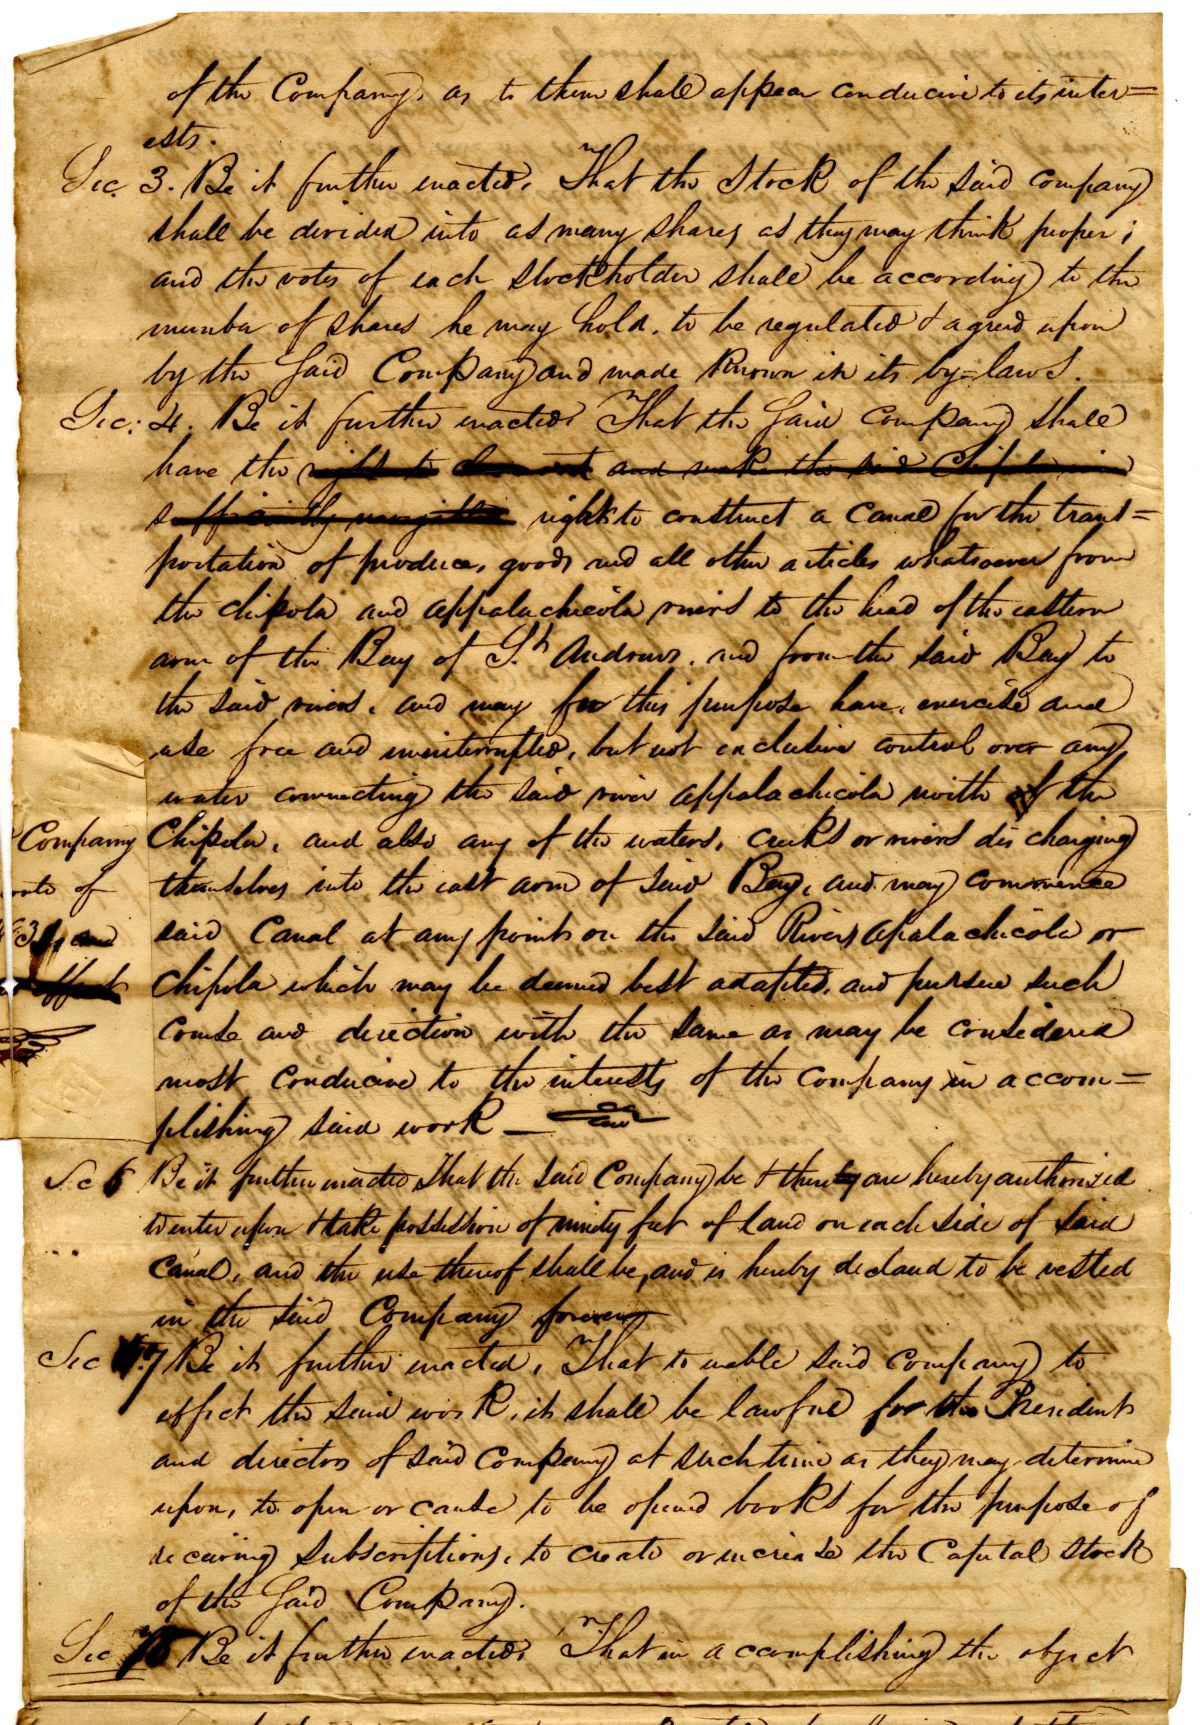 of the Company, as to them shall appear conducive to its inter=
ests.
Sec. 3. Be it further enacted, That the Stock of the said company
shall be divided into as many shares as they may think proper;
and the votes of each stockholder shall be according to the
number of shares he may hold, to be regulated & agreed upon
by the Said Company and made Known in its by=laws.
Sec: 4. Be it further enacted, That the Said Company shall
have the right to and make the said Chipola
sufficiently navigable right to construct a Canal for the trans=
portation of produce, goods and all other articles whatsoever from
the chipola and appalachicola rivers to the head of the eastern
arm of the Bay of St. Andrews, and from the said Bay to
the said rivers, and may for this purpose have, exercise and
use free and uninterrupted, but not exclusive control over any
water connecting the said river appalachicola with the
Company
Chipola, and also any of the waters, creeks or rivers discharging
of
themselves into the east arm of said Bay, and may commence
and
said Canal at any point on the said Rivers apalachicola or
effect
Chipola which may be deemed best adapted, and pursue such
course and direction with the same as may be considered
most conducive to the interests of the company in accom=
plishing said work
Sec 6 Be it further enacted That the said Company be & they are hereby authorized
to enter upon & take possession of ninety feet of land on each side of said
Canal, and the use thereof shall be, and is hereby declared to be vested
in the said Company forever
Sec 7 Be it further enacted, That to enable said company to
effect the said work, it shall be lawful for the President
and directors of said Company at such time as they may determine
upon, to open or cause to be opened books for the purpose of
receiving subscriptions, to create or increase the Capital stock
of the Said Company.
Sec 8 Be it further enacted, That in accomplishing the object